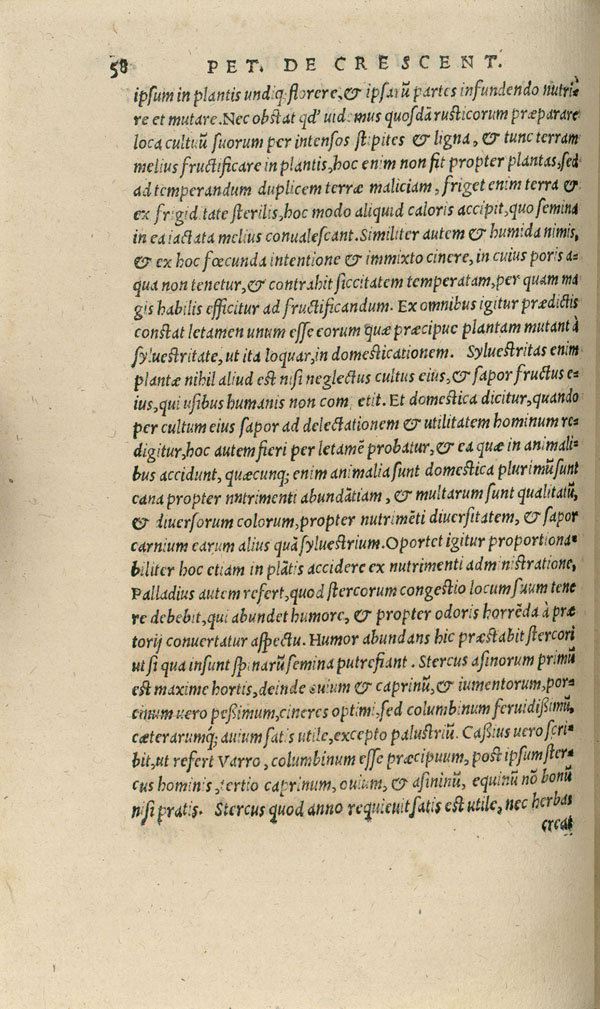 58 PET. DE CRESCENT.
ipsum in plantis undiq; florere, & ipsarū partes infundendo nutri⸗
re et mutare. Nec obstat qd' uidemus quosdā rusticorum præparare
loca cultuū suorum per intensos stipites & ligna, & tunc terram
melius fructificare in plantis, hoc enim non fit propter plantas, sed
ad temperandum duplicem terræ maliciam, friget enim terra &
ex frigiditate sterilis, hoc modo aliquid caloris accipit, quo semina
in ea iactata melius conualescant. Similiter autem & humida nimis,
& ex hoc fœcunda intentione & immixto cinere, in cuius poris a⸗
qua non tenetur, & contrahit siccitatem temperatam, per quam ma
gis habilis efficitur ad fructificandum. Ex omnibus igitur prædictis
constat letamen unum esse eorum quæ præcipue plantam mutant à
syluestritate, ut ita loquar, in domesticationem. Syluestritas enim
plantæ nihil aliud est nisi neglectus cultus eius, & sapor fructus e⸗
ius, qui usibus humanis non competit. Et domestica dicitur, quando
per cultum eius sapor ad delectationem & utilitatem hominum re⸗
digitur, hoc autem fieri per letamē probatur, & ea quæ in animali⸗
bus accidunt, quæcunq; enim animalia sunt domestica plurimū sunt
cana propter nutrimenti abundātiam, & multarum sunt qualitatū,
& diuersorum colorum, propter nutrimēti diuersitatem, & sapor
carnium earum alius quā syluestrium. Oportet igitur proportiona⸗
biliter hoc etiam in plātis accidere ex nutrimenti administratione,
Palladius autem refert, quod stercorum congestio locum suum tene
re debebit, qui abundet humore, & propter odoris horrēda à præ
torij conuertatur aspectu. Humor abundans hic præstabit stercori
ut si qua insunt spinarū semina putrefiant. Stercus asinorum primū
est maxime hortis, deinde ouium & caprinū, & iumentorum, por⸗
cinum uero peßimum, cineres optimi, sed columbinum feruidißimū,
cæterarumq; auium satis utile, excepto palustriū. Caßius uero scri⸗
bit, ut refert Varro, columbinum esse præcipuum, post ipsum ster⸗
cus hominis, tertio caprinum, ouium, & asininū, equinū nō bonū
nisi pratis. Stercus quod anno requieuit satis est utile, nec herbas
creat